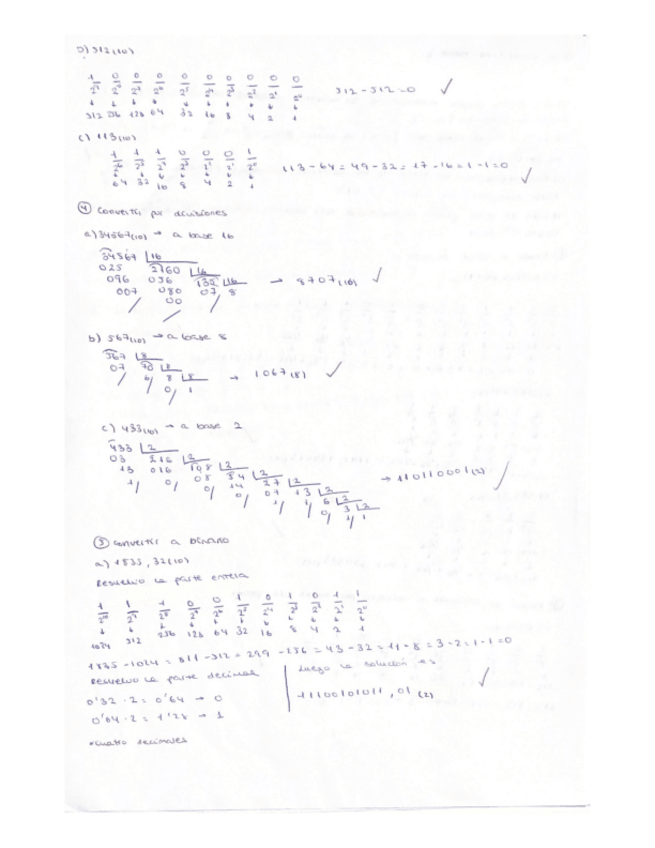 b) 512(10)
1 0 0 0 0 0 0 0 0 0
2⁹ 2⁸ 2⁷ 2⁶ 2⁵ 2⁴ 2³ 2² 2¹ 2⁰
512 256 128 64 32 16 8 4 2 1
512 - 512 = 0 ✓
c) 113(10)
1 1 1 0 0 0 1
2⁶ 2⁵ 2⁴ 2³ 2² 2¹ 2⁰
64 32 16 8 4 2 1
113 - 64 = 49 - 32 = 17 - 16 = 1 - 1 = 0 ✓
④ Convertir por divisiones
a) 34567(10) → a base 16
34567 | 16
025 2160 | 16
096 056 132 | 16
007 080 07 8
00
→ 8707(16) ✓
b) 567(10) → a base 8
567 | 8
07 70 | 8
6 8 | 8
0 1
→ 1067(8) ✓
c) 433(10) → a base 2
433 | 2
03 216 | 2
13 016 108 | 2
1 0 08 54 | 2
0 14 27 | 2
0 07 13 | 2
1 1 6 | 2
0 3 | 2
1 1
→ 110110001(2) ✓
⑤ Convertir a binario
a) 1835,32(10)
Resuelvo la parte entera
1 1 1 0 0 1 0 1 0 1 1
2¹⁰ 2⁹ 2⁸ 2⁷ 2⁶ 2⁵ 2⁴ 2³ 2² 2¹ 2⁰
1024 512 256 128 64 32 16 8 4 2 1
1835 - 1024 = 811 - 512 = 299 - 256 = 43 - 32 = 11 - 8 = 3 - 2 = 1 - 1 = 0
Resuelvo la parte decimal
0'32 · 2 = 0'64 → 0
0'64 · 2 = 1'28 → 1
*Cuatro decimales
Luego la solución es:
11100101011,01(2) ✓